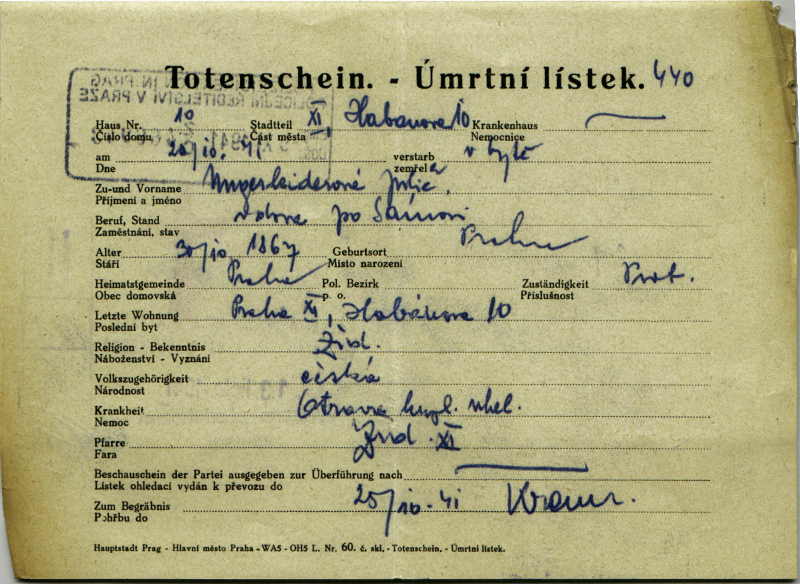 Totenschein. - Úmrtní lístek. 440
Haus Nr. 10 Stadtteil XI, Habanova 10 Krankenhaus
Číslo domu Část města Nemocnice
am 20/10. 41 verstarb v bytě
Dne zemřel a
Zu-und Vorname Ungerleiderová Julie
Příjmení a jméno
Beruf, Stand vdova po
Zaměstnání, stav
Alter 30/10 1867 Geburtsort Praha
Stáří Místo narození
Heimatstgemeinde Praha Pol. Bezirk Zuständigkeit Prot.
Obec domovská p. o. Příslušnost
Letzte Wohnung Praha XI, Habánova 10
Poslední byt
Religion - Bekenntnis Žid.
Náboženství - Vyznání
Volkszugehörigkeit česká
Národnost
Krankheit Otrava uhel.
Nemoc
Pfarre Žid. XI
Fara
Beschauschein der Partei ausgegeben zur Überführung nach
Lístek ohledací vydán k převozu do
Zum Begräbnis 20/10. 41
Pohřbu do
Hauptstadt Prag - Hlavní město Praha - WA5 - OH5 L. Nr. 60. č. skl. - Totenschein. - Úmrtní lístek.